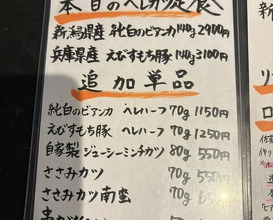 本日のヘレカツ定食
新潟県産 純白のビアンカ 140g 2900円
兵庫県産 えびすもち豚 140g 3100円
追加単品
純白のビアンカ ヘレハーフ 70g 1150円
えびすもち豚 ヘレハーフ 70g 1250円
自家製ジューシーミンチカツ 80g 550円
ささみカツ 70g 550円
ささみカツ南蛮 70g